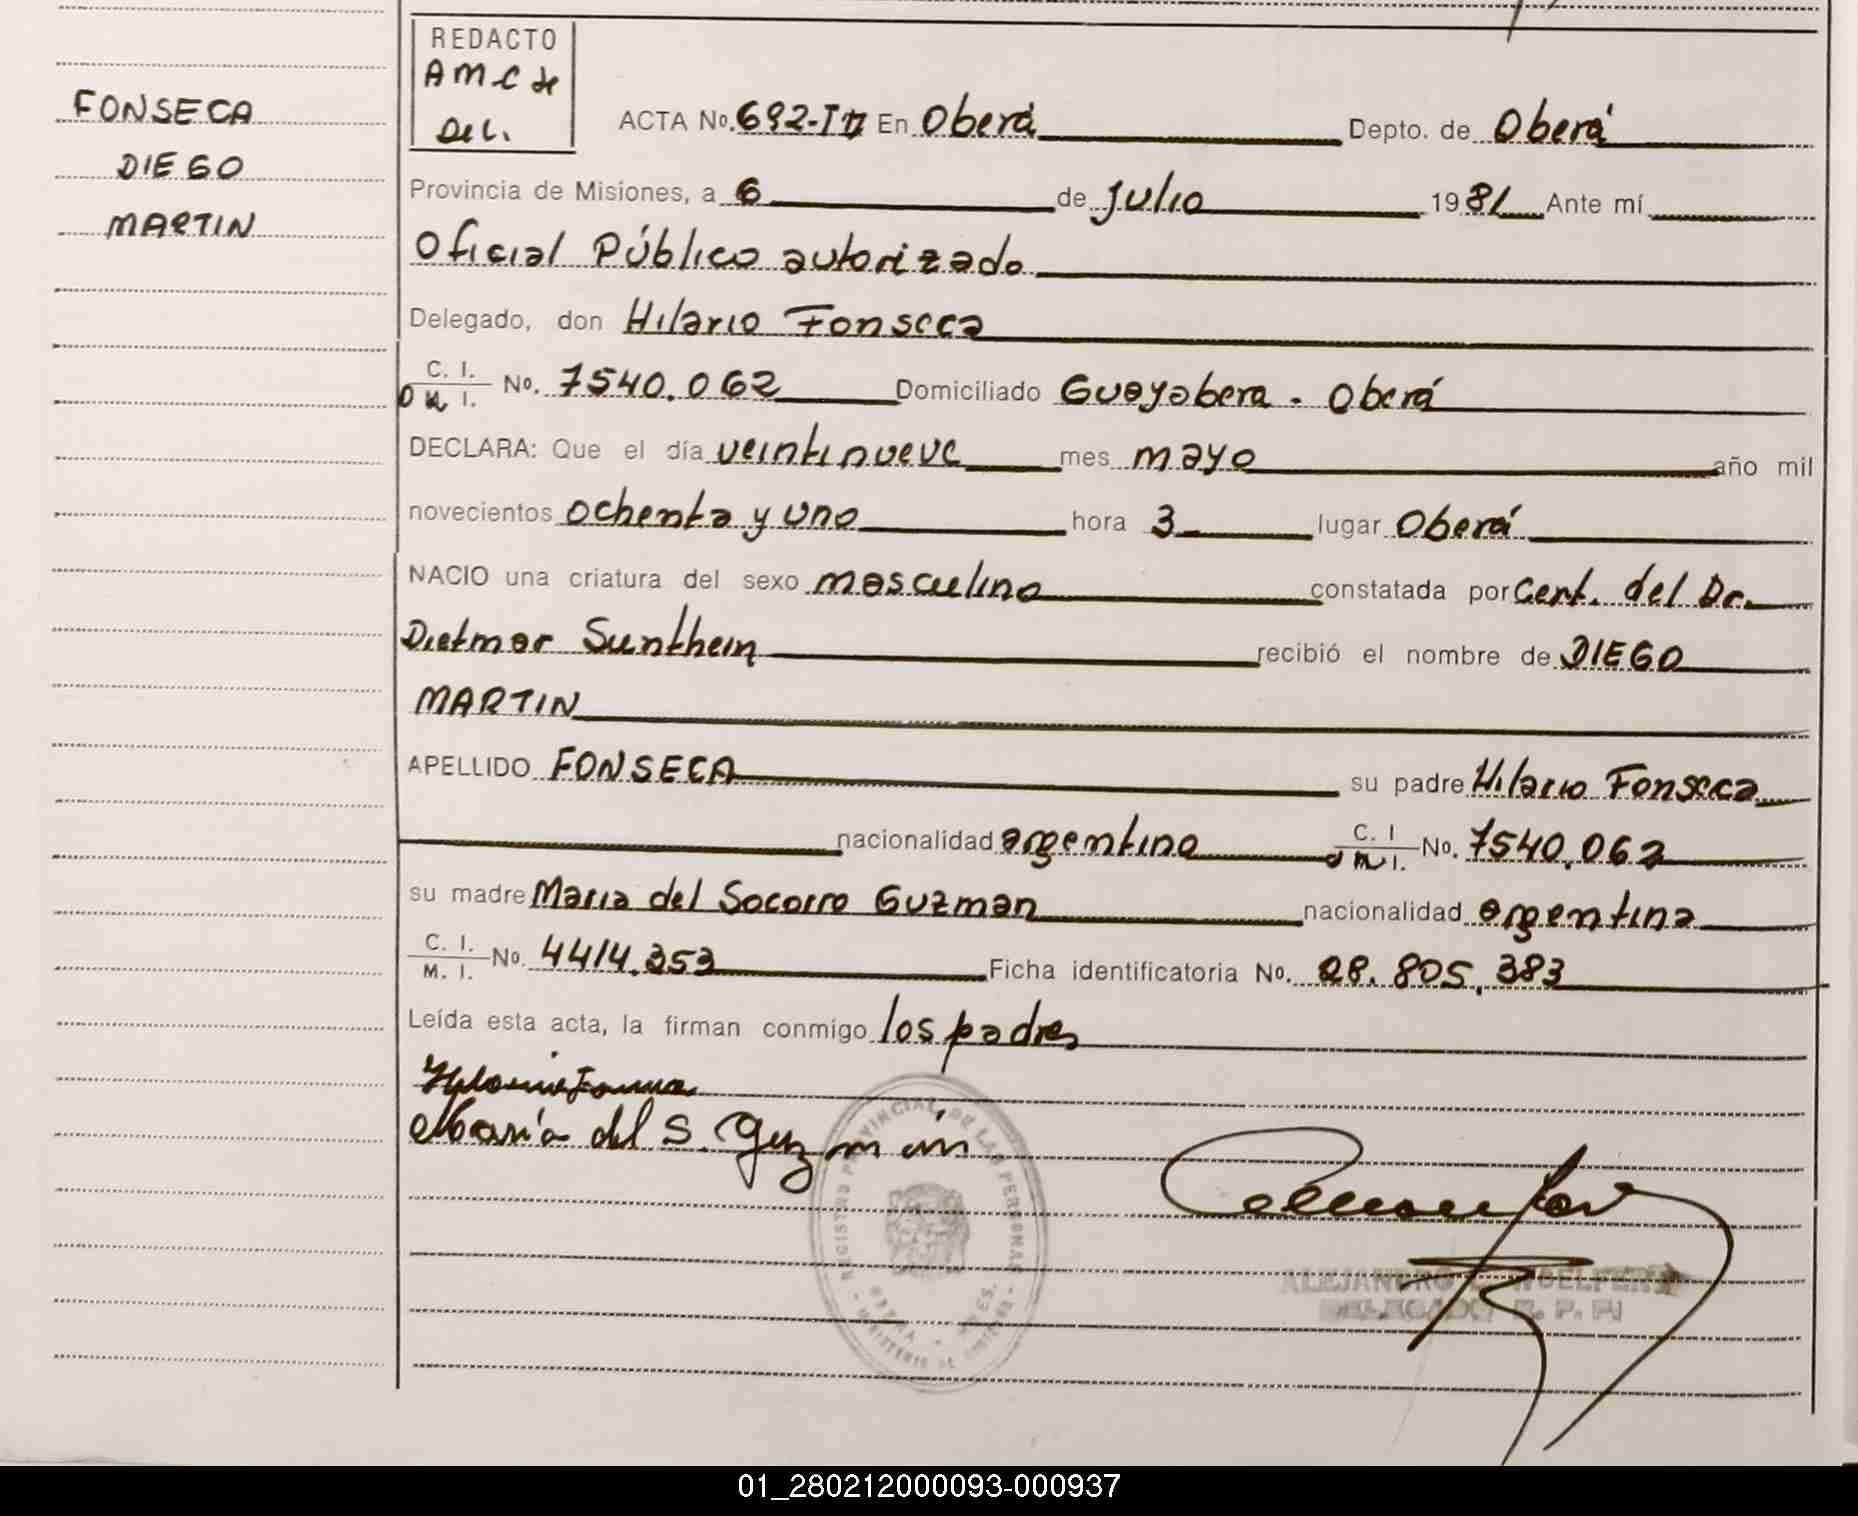 FONSECA
DIEGO
MARTIN
REDACTO
AMC de
Del.
ACTA No. 692-T II En Oberá Depto. de Oberá
Provincia de Misiones, a 6 de Julio 1981 Ante mí
Oficial Público autorizado
Delegado, don Hilario Fonseca
C. I.
D N I. No. 7540.062 Domiciliado Guayabera - Oberá
DECLARA: Que el día veintinueve mes mayo año mil
novecientos ochenta y uno hora 3 lugar Oberá
NACIO una criatura del sexo masculino constatada por Cert. del Dr.
Dietmar Sunthein recibió el nombre de DIEGO
MARTIN
APELLIDO FONSECA su padre Hilario Fonseca
nacionalidad argentina C. I
D N I. No. 7540.062
su madre Maria del Socorro Guzman nacionalidad argentina
C. I.
M. I. No. 4414.353 Ficha identificatoria No. 28.805.383
Leída esta acta, la firman conmigo los padres
María del S. Guzmán
REGISTRO PROVINCIAL DE LAS PERSONAS
OBERA - MNES.
MINISTERIO DE GOBIERNO
ALEJANDRO
DELEGADO R. P. P.
01_280212000093-000937